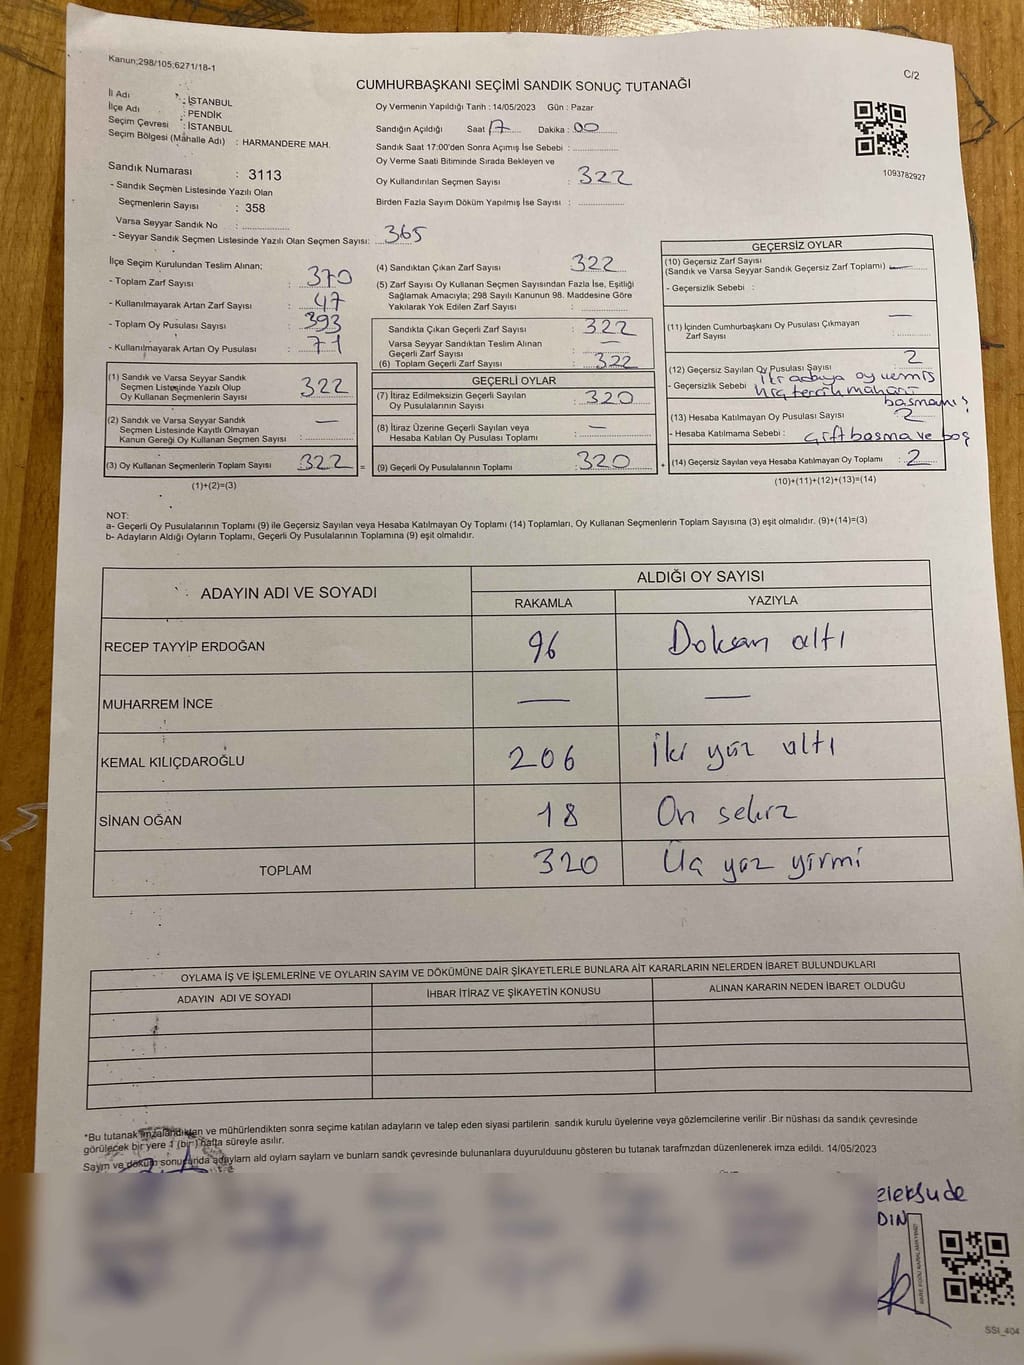 Kanun;298/105;6271/18-1
C/2
CUMHURBAŞKANI SEÇİMİ SANDIK SONUÇ TUTANAĞI
İl Adı : İSTANBUL
İlçe Adı : PENDİK
Seçim Çevresi : İSTANBUL
Seçim Bölgesi (Mahalle Adı) : HARMANDERE MAH.
Sandık Numarası : 3113
- Sandık Seçmen Listesinde Yazılı Olan
Seçmenlerin Sayısı : 358
Varsa Seyyar Sandık No :
- Seyyar Sandık Seçmen Listesinde Yazılı Olan Seçmen Sayısı: 365
Oy Vermenin Yapıldığı Tarih : 14/05/2023 Gün : Pazar
Sandığın Açıldığı Saat 17 Dakika : 00
Sandık Saat 17:00'den Sonra Açımış İse Sebebi :
Oy Verme Saati Bitiminde Sırada Bekleyen ve
Oy Kullandırılan Seçmen Sayısı : 322
Birden Fazla Sayım Döküm Yapılmış İse Sayısı :
1093782927
İlçe Seçim Kurulundan Teslim Alınan;
- Toplam Zarf Sayısı : 370
- Kullanılmayarak Artan Zarf Sayısı : 47
- Toplam Oy Pusulası Sayısı : 393
- Kullanılmayarak Artan Oy Pusulası : 71
(1) Sandık ve Varsa Seyyar Sandık
Seçmen Listesinde Yazılı Olup
Oy Kullanan Seçmenlerin Sayısı : 322
(2) Sandık ve Varsa Seyyar Sandık
Seçmen Listesinde Kayıtlı Olmayan
Kanun Gereği Oy Kullanan Seçmen Sayısı : —
(3) Oy Kullanan Seçmenlerin Toplam Sayısı : 322 =
(1)+(2)=(3)
(4) Sandıktan Çıkan Zarf Sayısı : 322
(5) Zarf Sayısı Oy Kullanan Seçmen Sayısından Fazla İse, Eşitliği
Sağlamak Amacıyla; 298 Sayılı Kanunun 98. Maddesine Göre
Yakılarak Yok Edilen Zarf Sayısı :
Sandıkta Çıkan Geçerli Zarf Sayısı : 322
Varsa Seyyar Sandıktan Teslim Alınan
Geçerli Zarf Sayısı : —
(6) Toplam Geçerli Zarf Sayısı : 322
GEÇERLİ OYLAR
(7) İtiraz Edilmeksizin Geçerli Sayılan
Oy Pusulalarının Sayısı : 320
(8) İtiraz Üzerine Geçerli Sayılan veya
Hesaba Katılan Oy Pusulası Toplamı : —
(9) Geçerli Oy Pusulalarının Toplamı : 320 +
GEÇERSİZ OYLAR
(10) Geçersiz Zarf Sayısı
(Sandık ve Varsa Seyyar Sandık Geçersiz Zarf Toplamı) —
- Geçersizlik Sebebi :
(11) İçinden Cumhurbaşkanı Oy Pusulası Çıkmayan
Zarf Sayısı : —
(12) Geçersiz Sayılan Oy Pusulası Sayısı : 2
- Geçersizlik Sebebi : İki adaya oy vermiş
hiç tercih mühürü
basmamış
(13) Hesaba Katılmayan Oy Pusulası Sayısı : 2
- Hesaba Katılmama Sebebi : Çift basma ve boş
(14) Geçersiz Sayılan veya Hesaba Katılmayan Oy Toplamı : 2
(10)+(11)+(12)+(13)=(14)
NOT:
a- Geçerli Oy Pusulalarının Toplamı (9) ile Geçersiz Sayılan veya Hesaba Katılmayan Oy Toplamı (14) Toplamları, Oy Kullanan Seçmenlerin Toplam Sayısına (3) eşit olmalıdır. (9)+(14)=(3)
b- Adayların Aldığı Oyların Toplamı, Geçerli Oy Pusulalarının Toplamına (9) eşit olmalıdır.
ADAYIN ADI VE SOYADI
ALDIĞI OY SAYISI
RAKAMLA YAZIYLA
RECEP TAYYİP ERDOĞAN 96 Doksan altı
MUHARREM İNCE — —
KEMAL KILIÇDAROĞLU 206 İki yüz altı
SİNAN OĞAN 18 On sekiz
TOPLAM 320 Üç yüz yirmi
OYLAMA İŞ VE İŞLEMLERİNE VE OYLARIN SAYIM VE DÖKÜMÜNE DAİR ŞİKAYETLERLE BUNLARA AİT KARARLARIN NELERDEN İBARET BULUNDUKLARI
ADAYIN ADI VE SOYADI İHBAR İTİRAZ VE ŞİKAYETİN KONUSU ALINAN KARARIN NEDEN İBARET OLDUĞU
*Bu tutanak imzalandıktan ve mühürlendikten sonra seçime katılan adayların ve talep eden siyasi partilerin sandık kurulu üyelerine veya gözlemcilerine verilir .Bir nüshası da sandık çevresinde
görülecek bir yere 1 (bir) hafta süreyle asılır.
Sayım ve döküm sonucunda adaylarn ald oylarn saylarn ve bunların sandk çevresinde bulunanlara duyurulduunu gösteren bu tutanak tarafmzdan düzenlenerek imza edildi. 14/05/2023
DIN
SSI_404